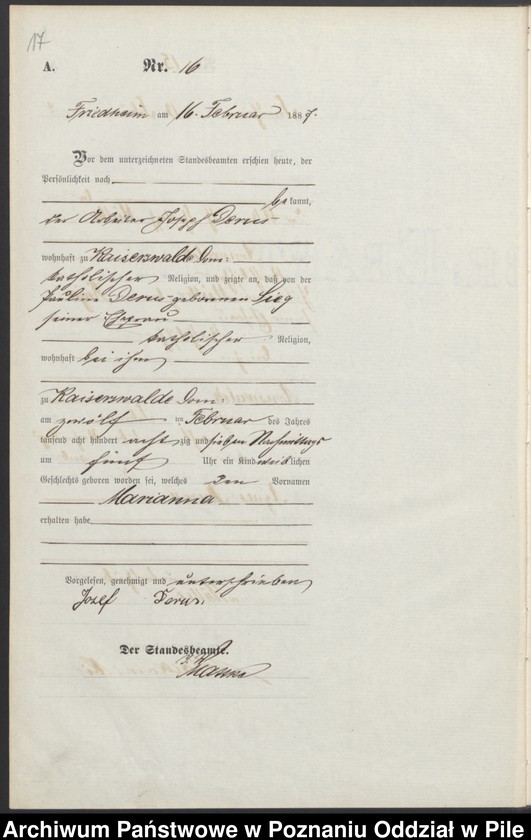 17
A. Nr. 16
Friedheim am 16. Februar 1887.
Vor dem unterzeichneten Standesbeamten erschien heute, der
Persönlichkeit nach
be kannt,
der Arbeiter Joseph Derus
wohnhaft zu Kaiserswalde Dom:
katholischer Religion, und zeigte an, daß von der
Pauline Derus gebornen Sieg
seiner Ehefrau
katholischer Religion,
wohnhaft bei ihm
zu Kaiserswalde Dom:
am zwölf ten Februar des Jahres
tausend acht hundert acht zig und sieben Nachmittags
um fünf Uhr ein Kind weib lichen
Geschlechts geboren worden sei, welches den Vornamen
Marianna
erhalten habe
Vorgelesen, genehmigt und unterschrieben
Jozef Derus
Der Standesbeamte.
Archiwum Państwowe w Poznaniu Oddział w Pile